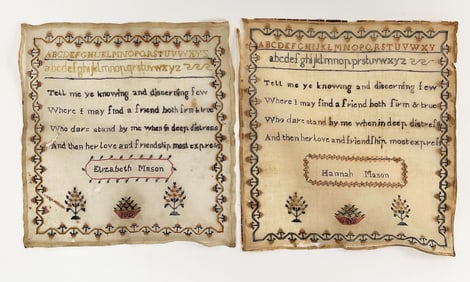 ABCDEFGHIJKLMNOPQRSTUVWXYZ
abcdefghijklmnopqrstuvwxyz
Tell me ye knowing and discerning few
Where I may find a friend both firm & true
Who dare stand by me when in deep distress
And then her love and friendship most express
Elizabeth Mason
ABCDEFGHIJKLMNOPQRSTUVWXY
abcdefghijklmnopqrstuvwxyz
Tell me ye knowing and discerning few
Where I may find a friend both firm & true
Who dare stand by me when in deep distress
And then her love and friendship most express
Hannah Mason